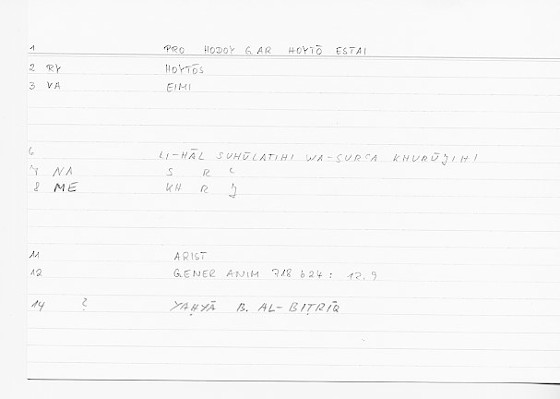 1 PRO HODOY GAR HOYTŌ ESTAI
2 RY HOYTŌS
3 VA EIMI
6 LI-HĀL SUHŪLATIHI WA-SURʿA KHURŪǦIHI
7 NA S R ʿ
8 ME KH R Ǧ
11 ARIST
12 GENER ANIM 718 b24 : 12.9
14 ? YAḤYĀ B. AL-BIṬRĪQ